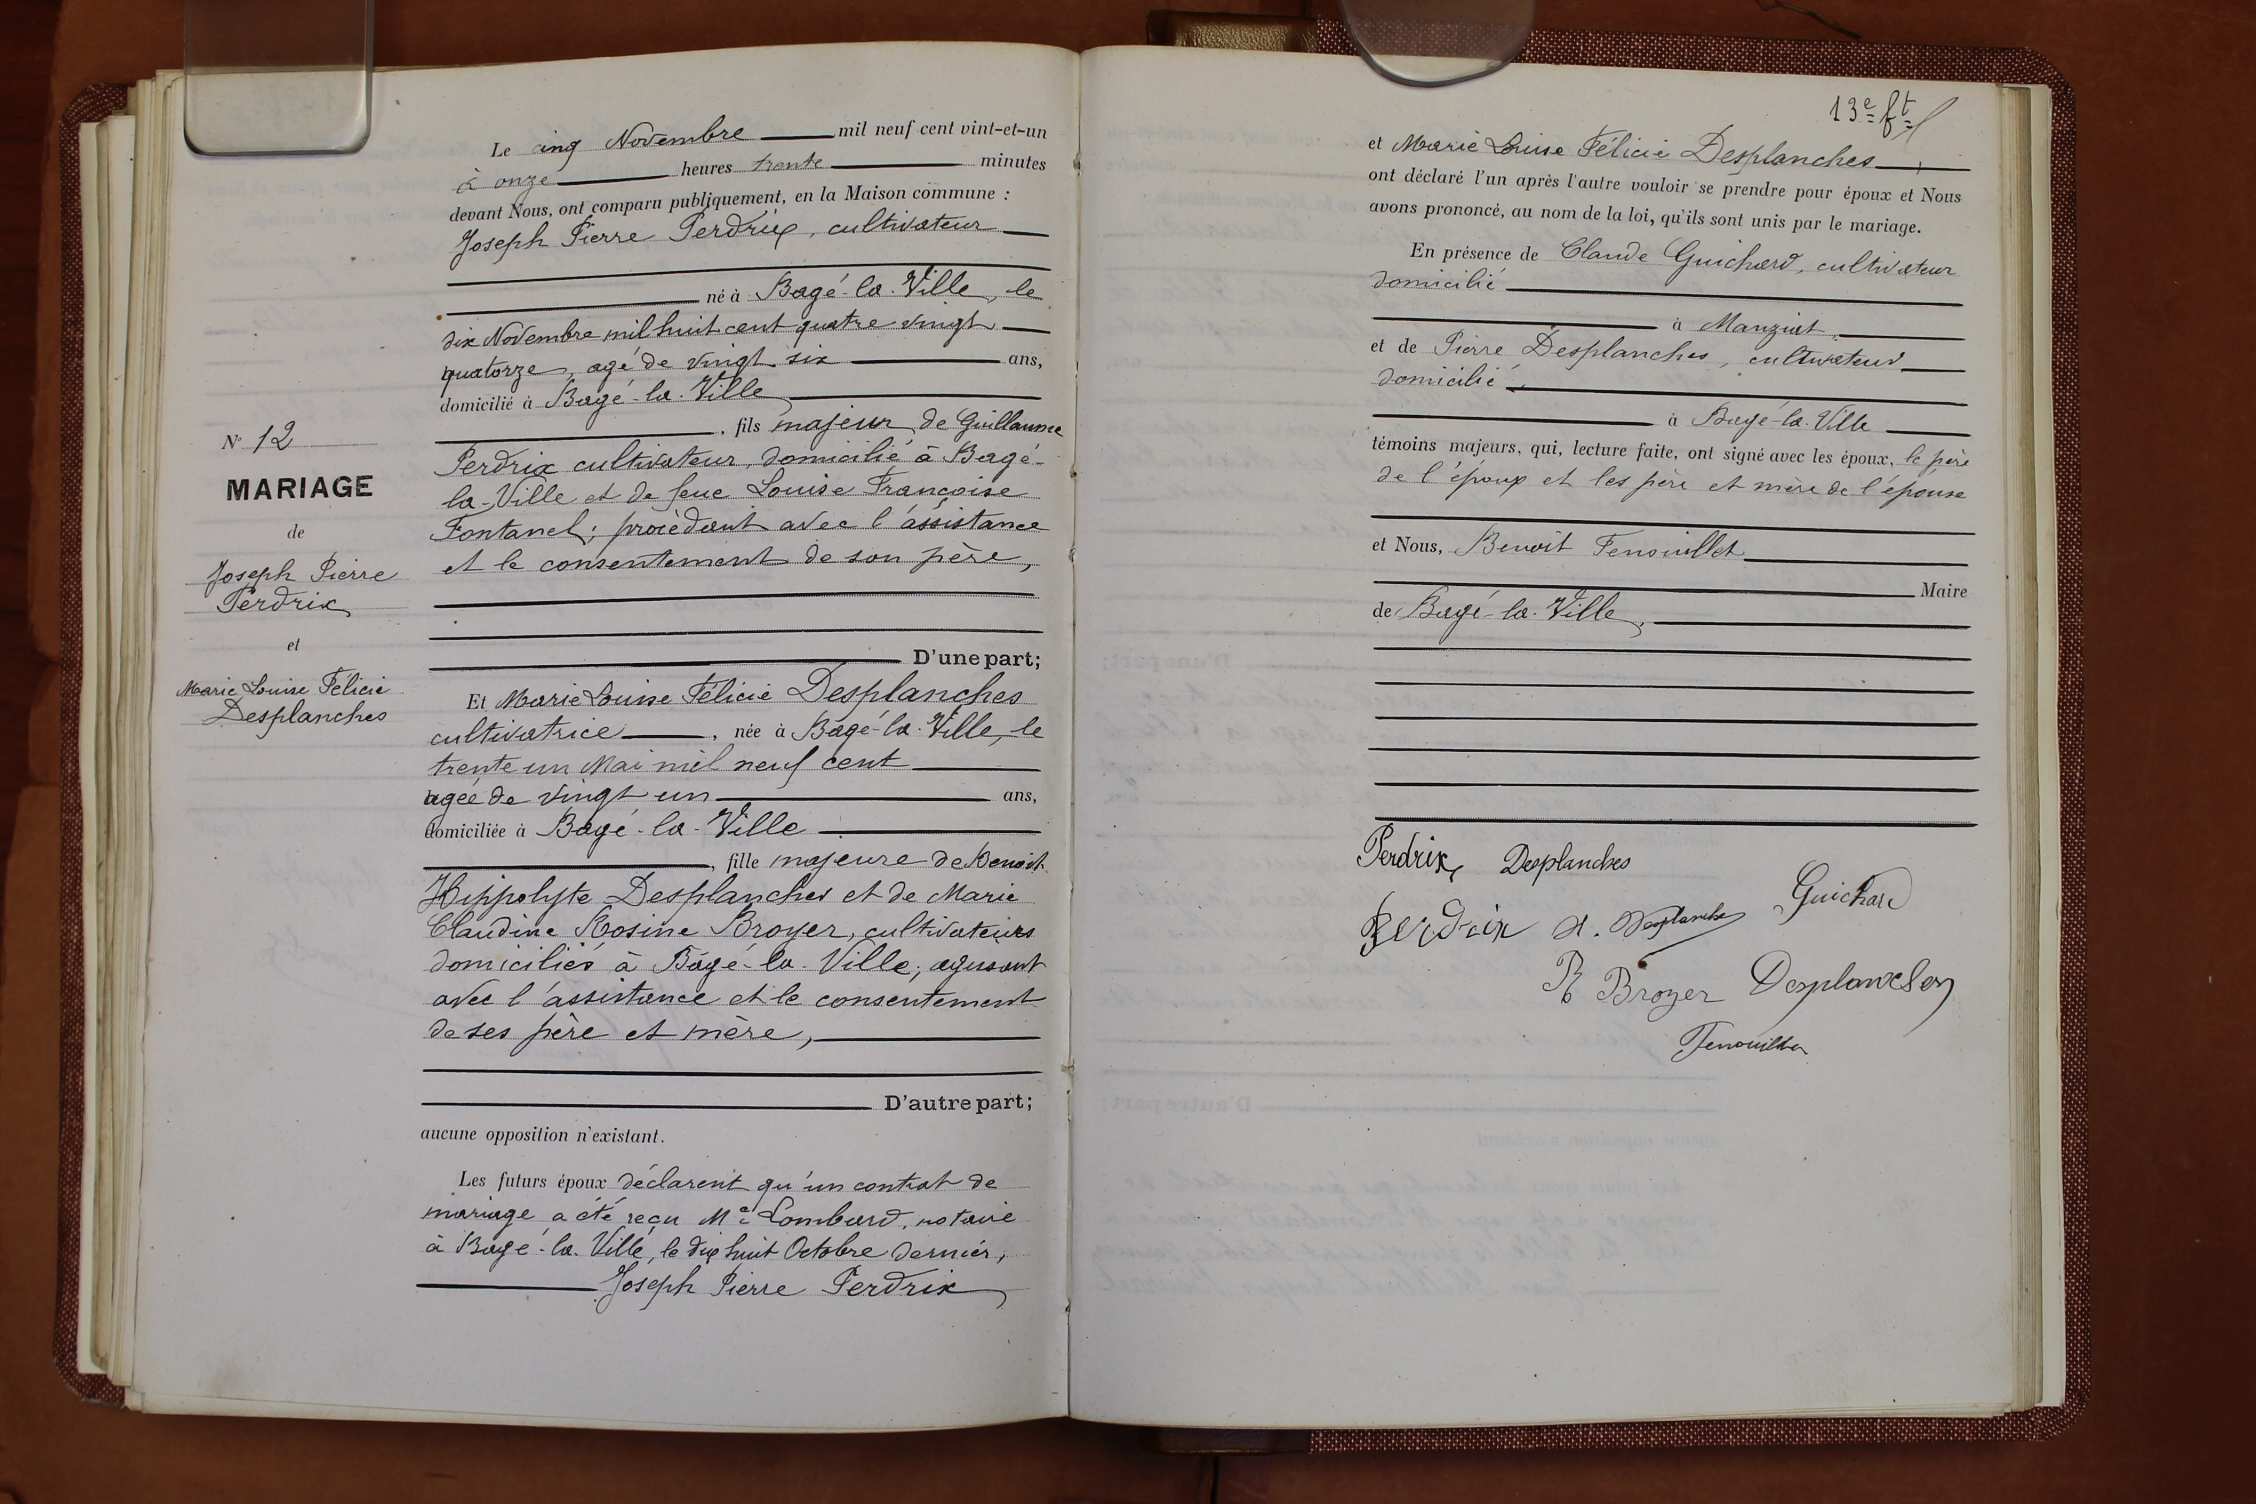 Le cinq Novembre mil neuf cent vint-et-un
à onze heures trente minutes
devant Nous, ont comparu publiquement, en la Maison commune :
Joseph Pierre Perdrix, cultivateur
né à Bagé-la-Ville, le
dix Novembre mil huit cent quatre vingt
quatorze, agé de vingt six ans,
domicilié à Bagé-la-Ville
, fils majeur de Guillaume
Perdrix cultivateur, domicilié à Bagé-
la-Ville et de feue Louise Françoise
Fontanel; procédant avec l'assistance
et le consentement de son père,
D'une part;
Et Marie Louise Félicie Desplanches
cultivatrice, née à Bagé-la-Ville, le
trente un Mai mil neuf cent
agée de vingt un ans,
domiciliée à Bagé-la-Ville
, fille majeure de Benoit
Hippolyte Desplanches et de Marie
Claudine Rosine Broyer, cultivateurs
domiciliés à Bagé-la-Ville, agissant
avec l'assistance et le consentement
de ses père et mère,
D'autre part;
aucune opposition n'existant.
Les futurs époux déclarent qu'un contrat de
mariage a été reçu Me Lombard, notaire
à Bagé-la-Ville, le dix huit Octobre dernier,
Joseph Pierre Perdrix
N° 12
MARIAGE
de
Joseph Pierre
Perdrix
et
Marie Louise Félicie
Desplanches
13e ft
et Marie Louise Félicie Desplanches
ont déclaré l'un après l'autre vouloir se prendre pour époux et Nous
avons prononcé, au nom de la loi, qu'ils sont unis par le mariage.
En présence de Claude Guichard, cultivateur
domicilié
à Manziat
et de Pierre Desplanches, cultivateur
domicilié
à Bagé-la-Ville
témoins majeurs, qui, lecture faite, ont signé avec les époux, le père
de l'époux et les père et mère de l'épouse
et Nous, Benoit Fenouillet
Maire
de Bagé-la-Ville,
Perdrix Desplanches
Guichard
Perdrix H. Desplanches
R Broyer Desplanches
Fenouillet